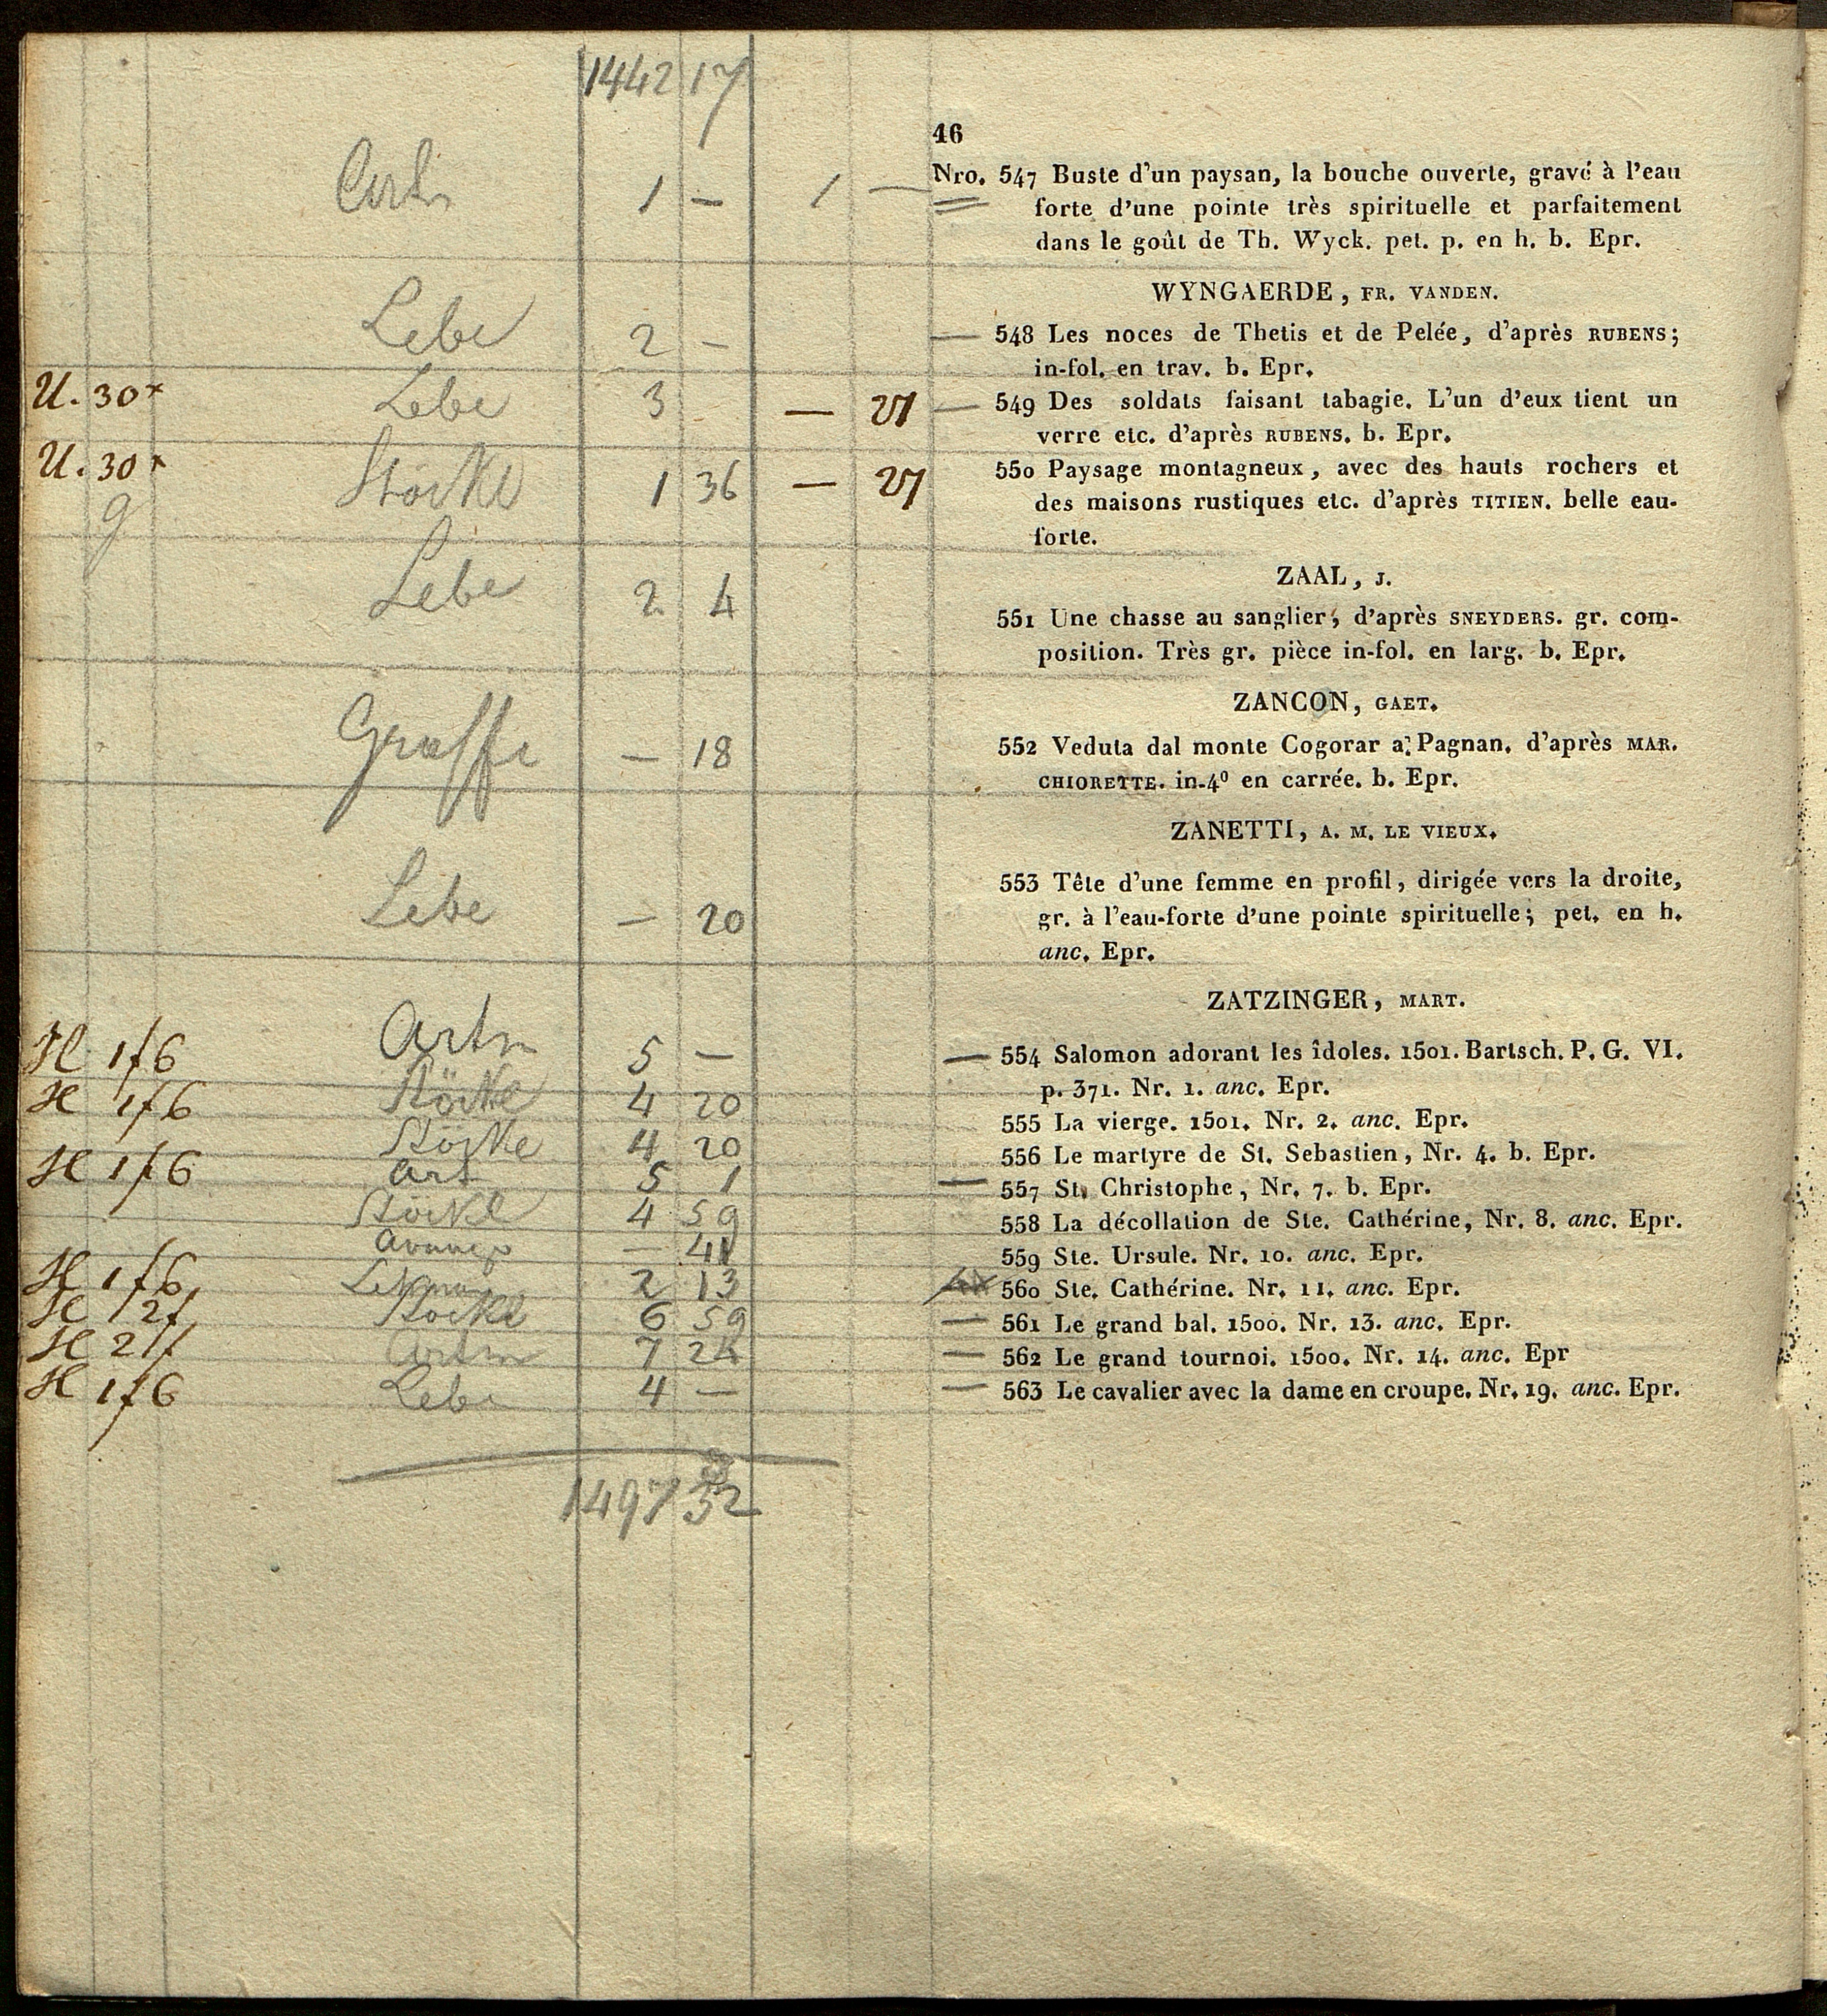 1442 17
46
Nro. 547 Buste d'un paysan, la bouche ouverte, gravé à l'eau
forte d'une pointe très spirituelle et parfaitement
dans le goût de Th. Wyck. pet. p. en h. b. Epr.
1 — 1 —
WYNGAERDE, FR. VANDEN.
Lebe 2 —
— 548 Les noces de Thetis et de Pelée, d'après RUBENS;
in-fol. en trav. b. Epr.
U. 30x Lebe 3 — 21
— 549 Des soldats faisant tabagie. L'un d'eux tient un
verre etc. d'après RUBENS. b. Epr.
U. 30x Stöckl 1 36 — 27
g
550 Paysage montagneux, avec des hauts rochers et
des maisons rustiques etc. d'après TITIEN. belle eau-
forte.
ZAAL, J.
Lebe 2 4
551 Une chasse au sanglier, d'après SNEYDERS. gr. com-
position. Très gr. pièce in-fol. en larg. b. Epr.
ZANCON, GAET.
Graffe — 18
552 Veduta dal monte Cogorar a Pagnan. d'après MAR.
CHIORETTE. in-4º en carrée. b. Epr.
ZANETTI, A. M. LE VIEUX.
Lebe — 20
553 Tête d'une femme en profil, dirigée vers la droite,
gr. à l'eau-forte d'une pointe spirituelle; pet. en h.
anc. Epr.
ZATZINGER, MART.
H 1f6 Artm 5 —
— 554 Salomon adorant les îdoles. 1501. Bartsch. P. G. VI.
p. 371. Nr. 1. anc. Epr.
H 1f6 Stöckl 4 20
555 La vierge. 1501. Nr. 2. anc. Epr.
Stöckl 4 20
556 Le martyre de St. Sebastien, Nr. 4. b. Epr.
H 1f6 Art 5 1
— 557 St. Christophe, Nr. 7. b. Epr.
Stöckl 4 59
558 La décollation de Ste. Cathérine, Nr. 8. anc. Epr.
— 41
559 Ste. Ursule. Nr. 10. anc. Epr.
H 1f6 2 13
560 Ste. Cathérine. Nr. 11. anc. Epr.
H 2f Stöckl 6 59
— 561 Le grand bal. 1500. Nr. 13. anc. Epr.
H 2f Artm 7 24
— 562 Le grand tournoi. 1500. Nr. 14. anc. Epr
H 1f6 Lebe 4 —
— 563 Le cavalier avec la dame en croupe. Nr. 19. anc. Epr.
1497 32